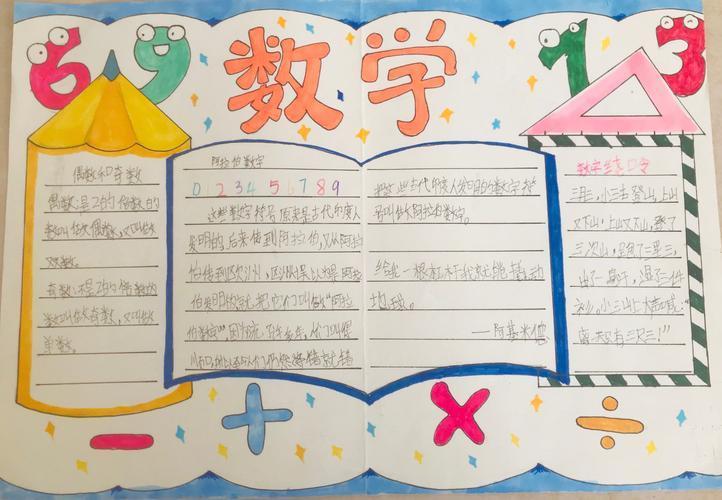 6 9 数学 1 3
偶数和奇数
偶数:是2的倍数的
数叫做偶数,又叫做
双数。
奇数:不是2的倍数的
数叫做奇数,又叫做
单数。
阿拉伯数字
0 1 2 3 4 5 6 7 8 9
这些数字符号原来是古代印度人
发明的,后来传到阿拉伯,又从阿拉
伯传到欧洲,欧洲人误以为是阿拉
伯发明的,就把它们叫做“阿拉
伯数字”,因为流
把这些古代印度人发明的数字符
号叫做阿拉伯数字。
给我一根杠杆我就能撬动
地球。
——阿基米德
数字绕口令
三月三,小三去登山;上山
又下山,下山又上山,登了
三次山,跑了三里三,
出了一身汗,湿了三件
衫,小三山上大声喊:
“离天只有三尺三!”
- + × ÷